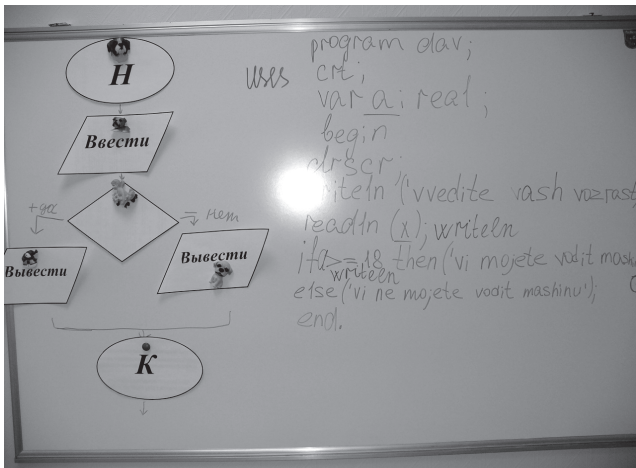 Н
Ввести
+да
= нет
Вывести
Вывести
К
program dav;
uses crt;
var a: real;
begin
clrscr;
writeln ('vvedite vash vozrast
readln (x); writeln
if a>=18 then ('vi mojete vodit mash
writeln
else ('vi ne mojete vodit mashinu');
end.